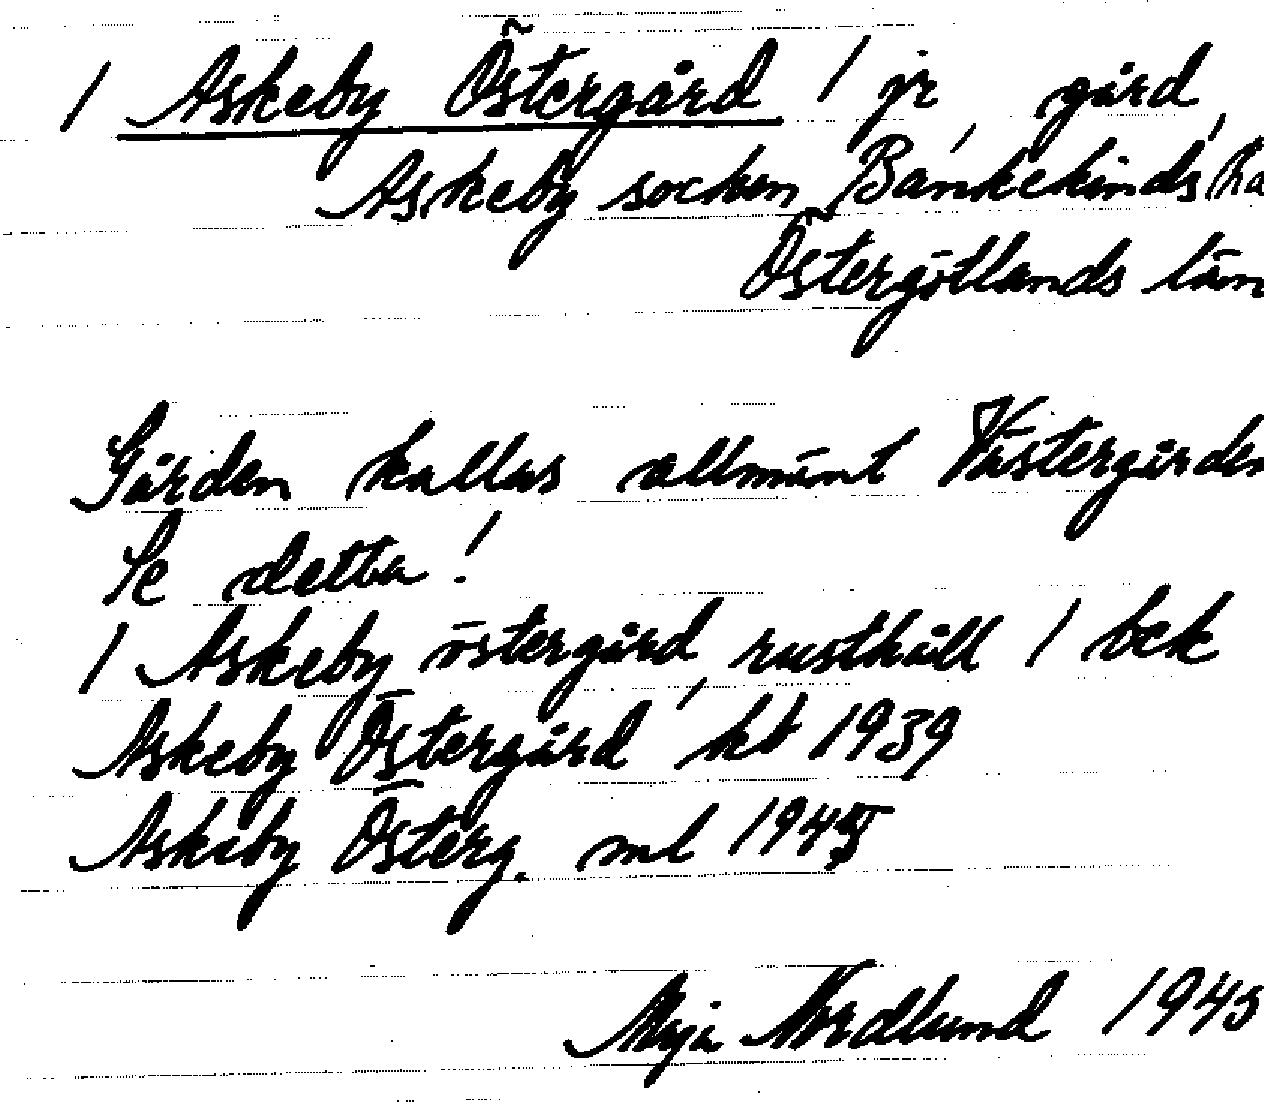 / Askeby Östergård / jr gård,
Askeby socken, Bankekinds ha
Östergötlands län
Gården kallas allmänt Västergården
Se detta!
/ Askeby östergård, rusthåll / bek
Askeby Östergård kb 1939
Askeby Österg. ml 1945
Maja Nordlund 1945